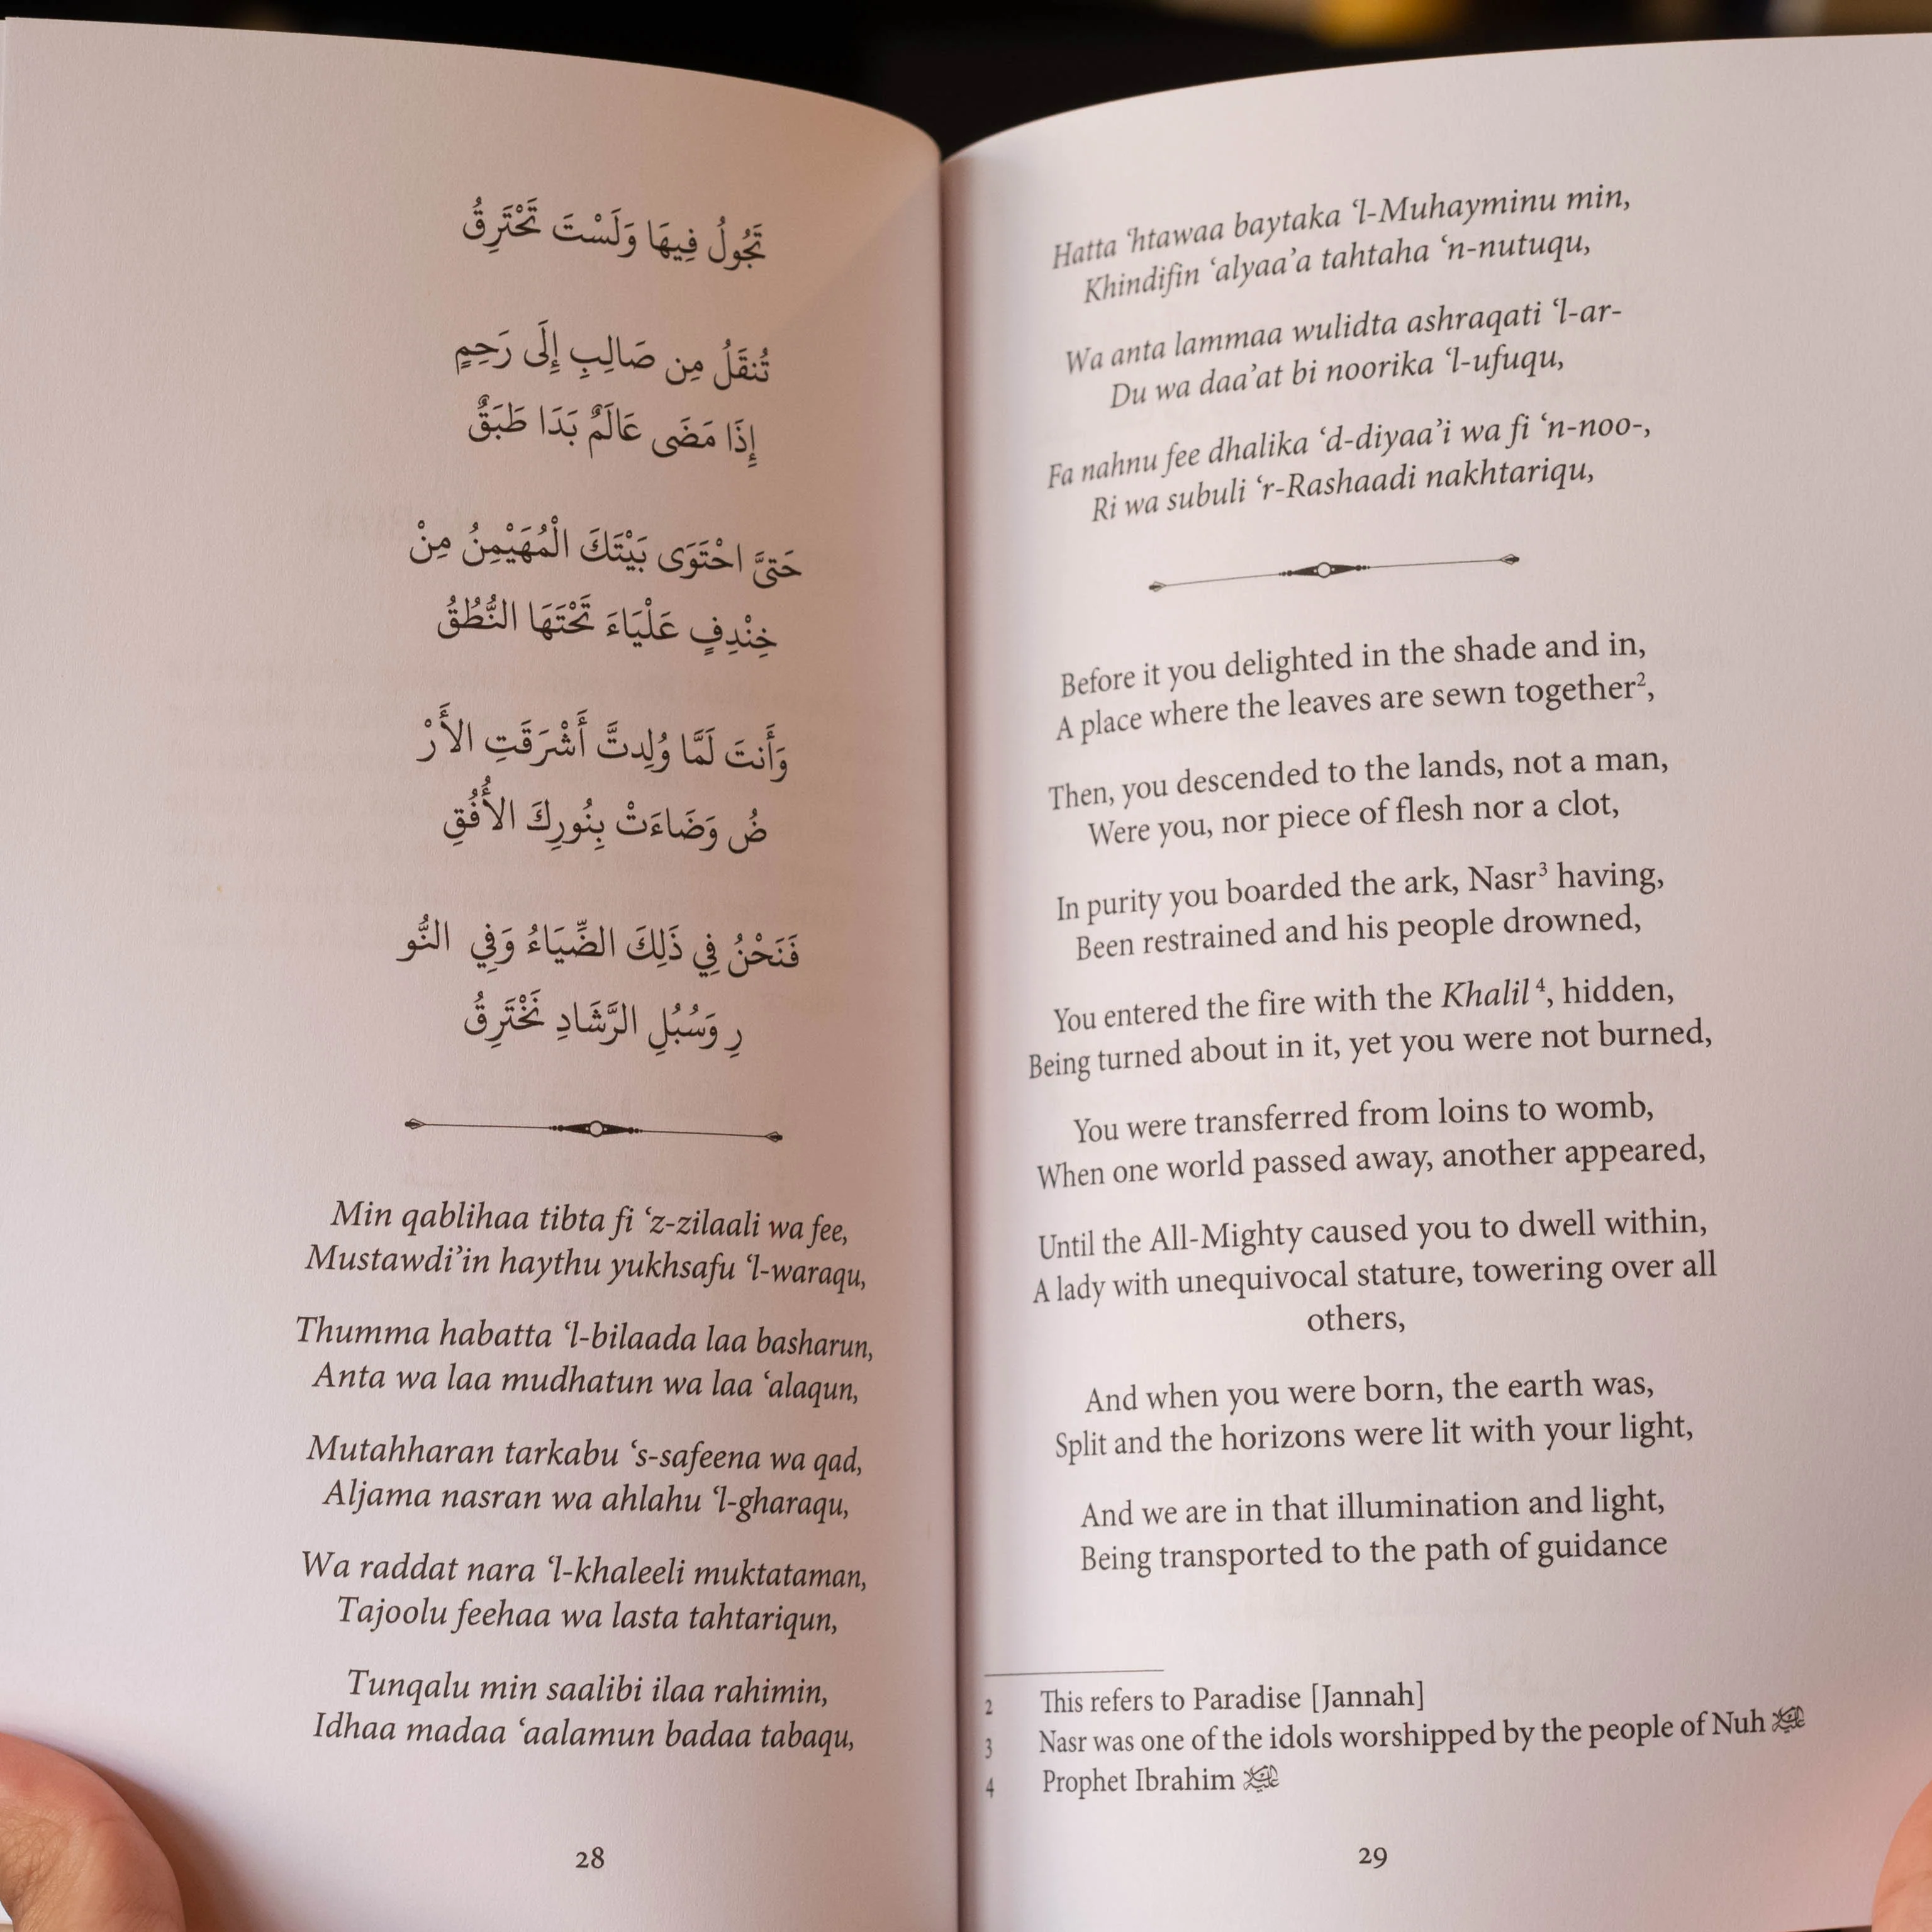 تَجُولُ فِيهَا وَلَسْتَ تَحْتَرِقُ
تُنقَلُ مِن صَالِبِ إِلَى رَحِمٍ
إِذَا مَضَى عَالَمٌ بَدَا طَبَقٌ
حَتىَّ احْتَوَى بَيْتَكَ الْمُهَيْمِنُ مِنْ
خِنْدِفٍ عَلْيَاءَ تَحْتَهَا النُّطُقُ
وَأَنتَ لَمَّا وُلِدتَّ أَشْرَقَتِ الأَرْ
ضُ وَضَاءَتْ بِنُورِكَ الأُفُقِ
فَنَحْنُ فِي ذَلِكَ الضِّيَاءُ وَفِي النُّو
رِ وَسُبُلِ الرَّشَادِ نَخْتَرِقُ
Min qablihaa tibta fi ‘z-zilaali wa fee,
Mustawdi’in haythu yukhsafu ‘l-waraqu,
Thumma habatta ‘l-bilaada laa basharun,
Anta wa laa mudhatun wa laa ‘alaqun,
Mutahharan tarkabu ‘s-safeena wa qad,
Aljama nasran wa ahlahu ‘l-gharaqu,
Wa raddat nara ‘l-khaleeli muktataman,
Tajoolu feehaa wa lasta tahtariqun,
Tunqalu min saalibi ilaa rahimin,
Idhaa madaa ‘aalamun badaa tabaqu,
28
Hatta ‘htawaa baytaka ‘l-Muhayminu min,
Khindifin ‘alyaa’a tahtaha ‘n-nutuqu,
Wa anta lammaa wulidta ashraqati ‘l-ar-
Du wa daa’at bi noorika ‘l-ufuqu,
Fa nahnu fee dhalika ‘d-diyaa’i wa fi ‘n-noo-,
Ri wa subuli ‘r-Rashaadi nakhtariqu,
Before it you delighted in the shade and in,
A place where the leaves are sewn together²,
Then, you descended to the lands, not a man,
Were you, nor piece of flesh nor a clot,
In purity you boarded the ark, Nasr³ having,
Been restrained and his people drowned,
You entered the fire with the Khalil⁴, hidden,
Being turned about in it, yet you were not burned,
You were transferred from loins to womb,
When one world passed away, another appeared,
Until the All-Mighty caused you to dwell within,
A lady with unequivocal stature, towering over all
others,
And when you were born, the earth was,
Split and the horizons were lit with your light,
And we are in that illumination and light,
Being transported to the path of guidance
2 This refers to Paradise [Jannah]
3 Nasr was one of the idols worshipped by the people of Nuh
4 Prophet Ibrahim
29